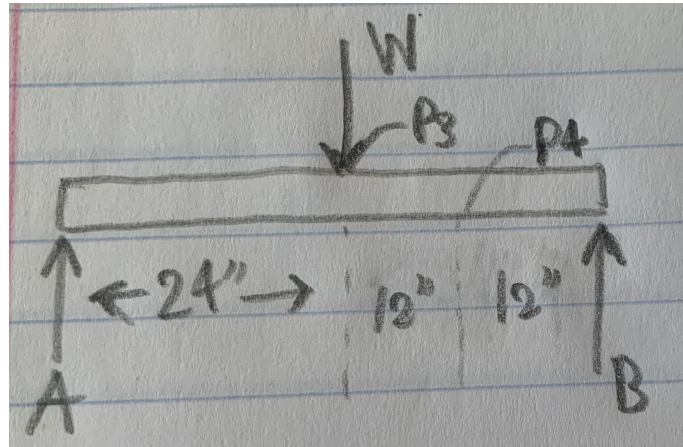 W
P3
P4
24"
12"
12"
A
B